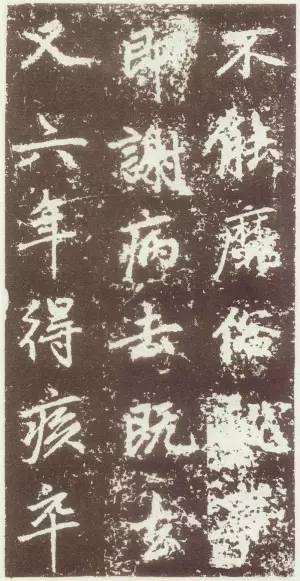 不能靡俗
即謝病去既去
又六年得疾卒